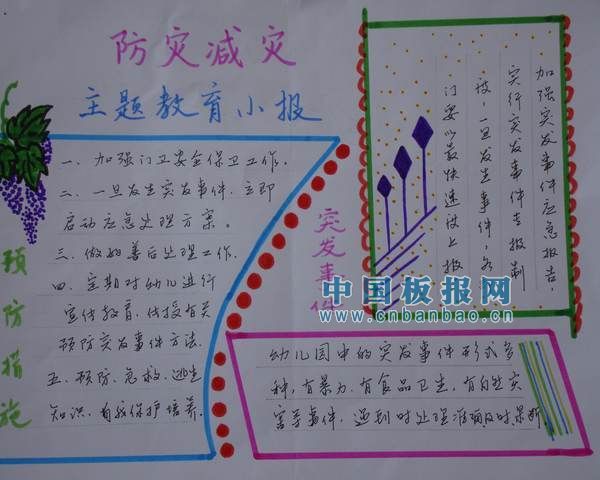 防灾减灾
主题教育小报
预防措施
一、加强门卫安全保卫工作。
二、一旦发生突发事件、立即
启动应急处理方案。
三、做好善后处理工作.
四、定期对幼儿进行
宣传教育.传授有关
预防突发事件方法.
五、预防、急救、逃生
知识、自我保护培养.
突发事件
加强突发事件应急报告,
实行突发事件专报制
度,一旦发生事件,各
门要以最快速度上报
中国板报网
www.cnbanbao.cn
幼儿园中的突发事件形式多
种,有暴力、有食品卫生,有自然灾
害等事件.遇到时处理准确及时果断.